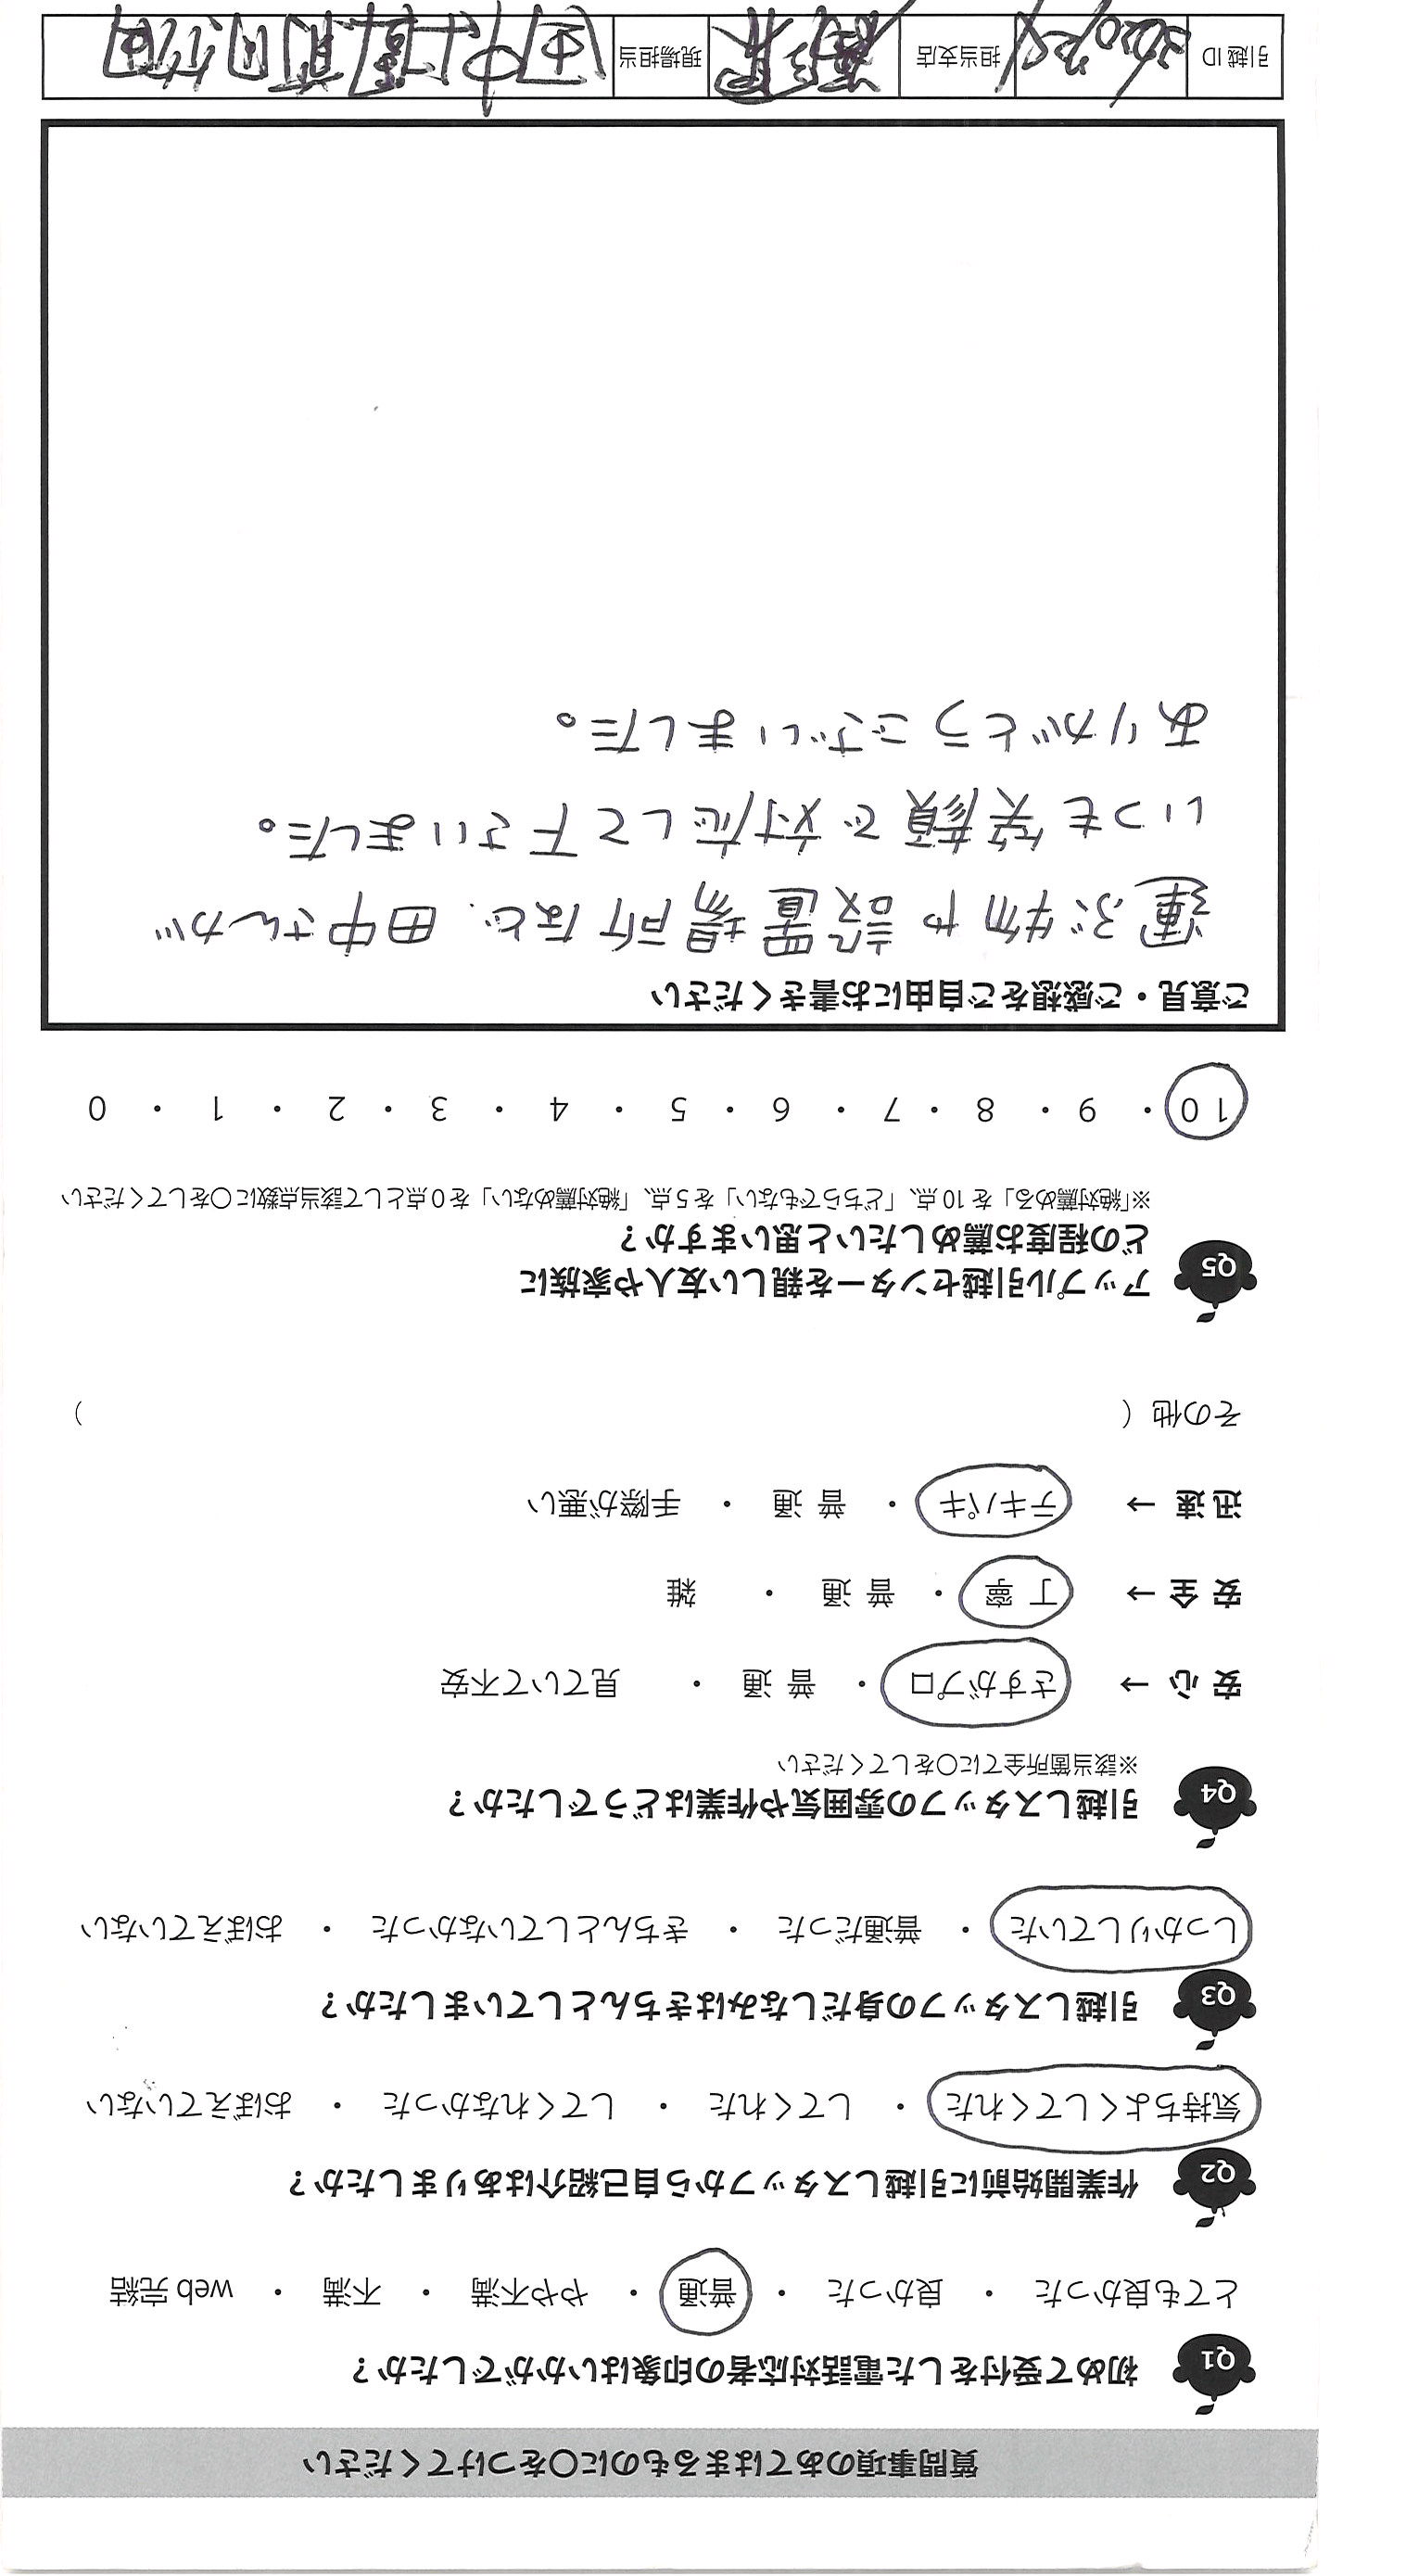 質問事項のあてはまるものに○をつけてください
Q1 初めて受付をした電話対応者の印象はいかがでしたか？
とても良かった ・ 良かった ・ 普通 ・ やや不満 ・ 不満 ・ web 完結
Q2 作業開始前に引越しスタッフから自己紹介はありましたか？
気持ちよくしてくれた ・ してくれた ・ してくれなかった ・ おぼえていない
Q3 引越しスタッフの身だしなみはきちんとしていましたか？
しっかりしていた ・ 普通だった ・ きちんとしていなかった ・ おぼえていない
Q4 引越しスタッフの雰囲気や作業はどうでしたか？
※該当箇所全てに○をしてください
安心 → さすがプロ ・ 普通 ・ 見ていて不安
安全 → 丁寧 ・ 普通 ・ 雑
迅速 → テキパキ ・ 普通 ・ 手際が悪い
その他（ ）
Q5 アップル引越センターを親しい友人や家族に
どの程度お薦めしたいと思いますか？
※「絶対薦める」を 10 点、「どちらでもない」を 5 点、「絶対薦めない」を 0 点として該当点数に○をしてください
10 ・ 9 ・ 8 ・ 7 ・ 6 ・ 5 ・ 4 ・ 3 ・ 2 ・ 1 ・ 0
ご意見・ご感想をご自由にお書きください
運ぶ物や設置場所など、田中さんが
いつも笑顔で対応して下さいました。
ありがとうございました。
引越 ID 担当支店 現場担当 田中